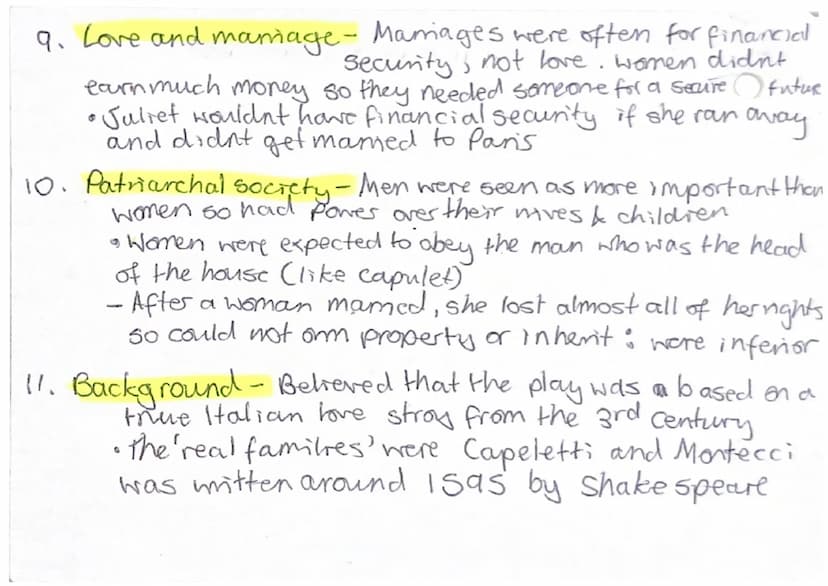 9. Love and marriage - Marriages were often for financial
security, not love. Women didnt
earn much money so they needed someone for a secure future
• Juliet wouldnt have financial security if she ran away
and didnt get married to Paris
10. Patriarchal society - Men were seen as more important than
women so had power over their wives & children
• Women were expected to obey the man who was the head
of the house (like capulet)
- After a woman married, she lost almost all of her rights
so could not own property or inherit : were inferior
11. Background - Believed that the play was based on a
true Italian love stroy from the 3rd century
• The 'real families' were Capeletti and Montecci
was written around 1595 by Shakespeare